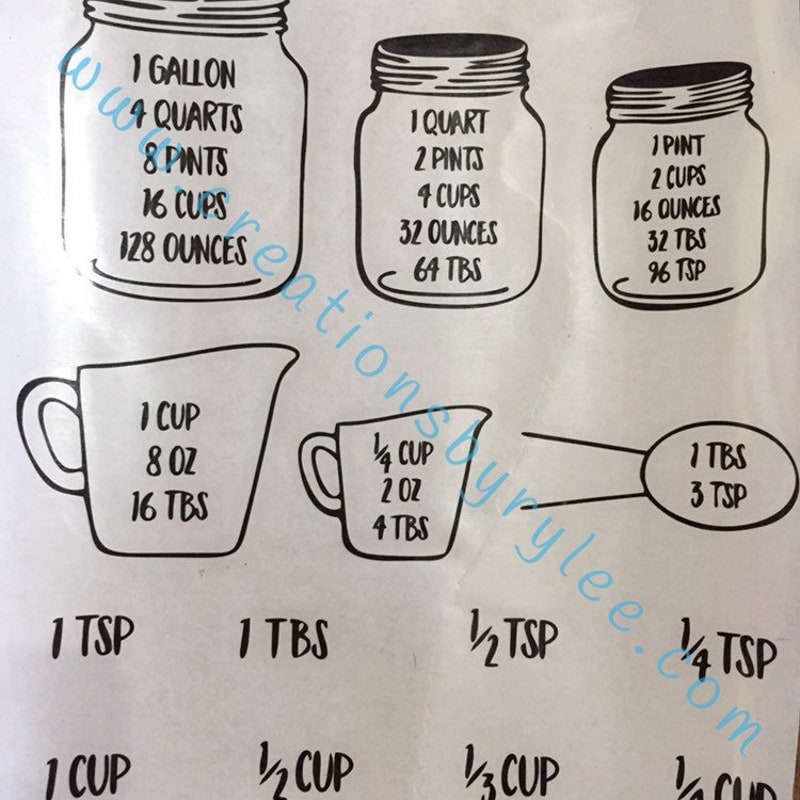 1 GALLON
4 QUARTS
8 PINTS
16 CUPS
128 OUNCES
1 QUART
2 PINTS
4 CUPS
32 OUNCES
64 TBS
1 PINT
2 CUPS
16 OUNCES
32 TBS
96 TSP
1 CUP
8 OZ
16 TBS
1/4 CUP
2 OZ
4 TBS
1 TBS
3 TSP
1 TSP
1 TBS
1/2 TSP
1/4 TSP
1 CUP
1/2 CUP
1/3 CUP
CUP
www.creationsbyrylee.com